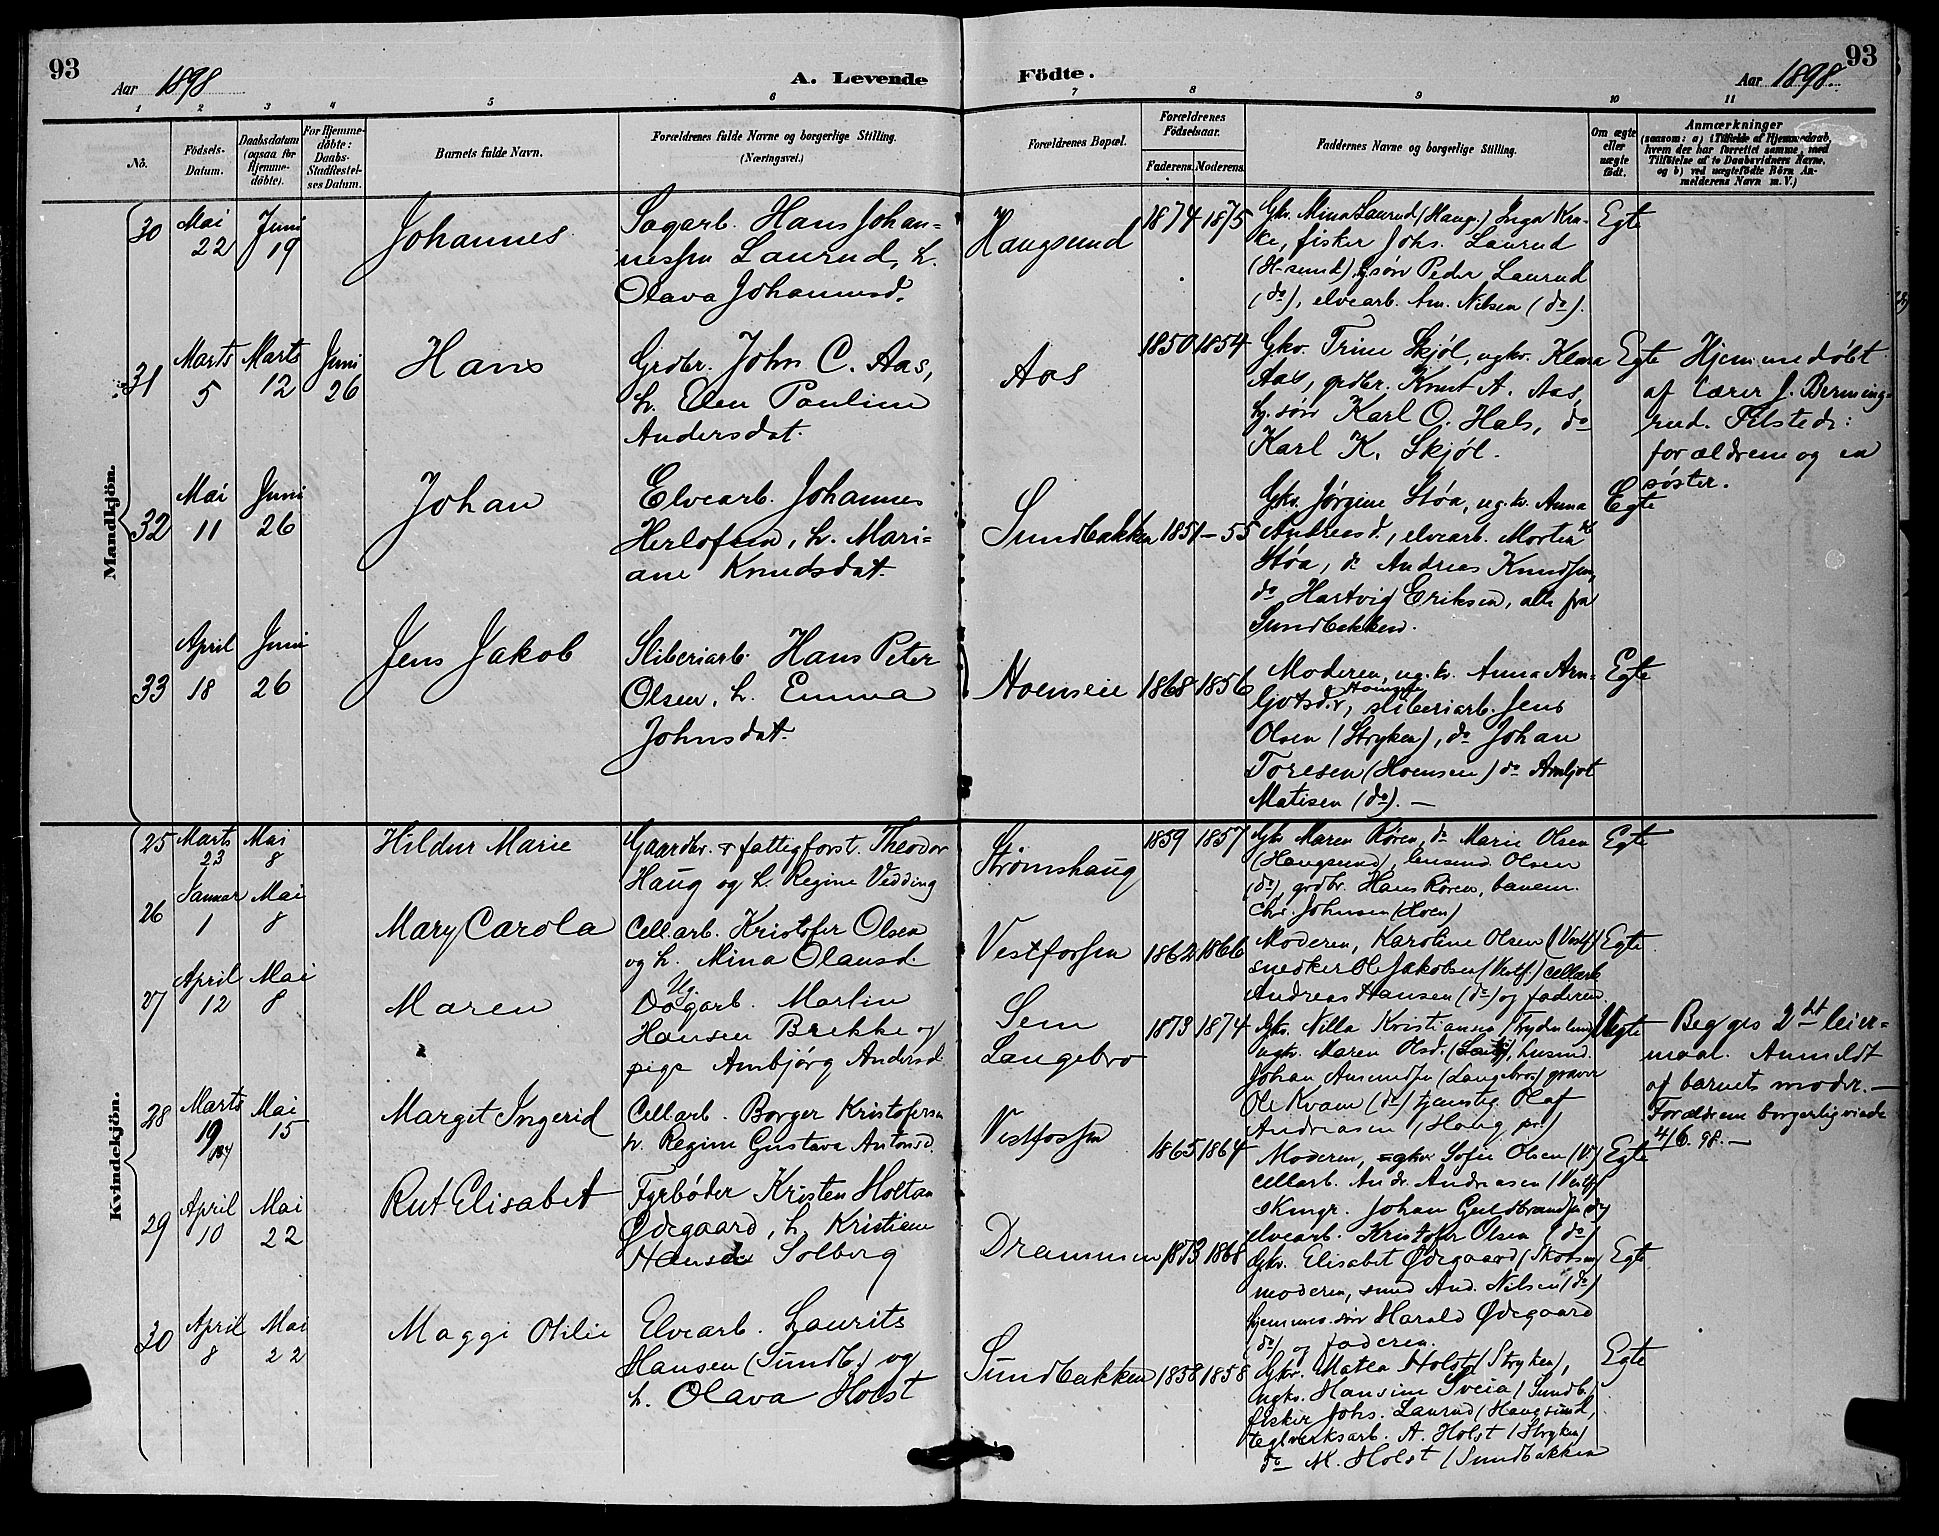 93
Aar 1898
A. Levende Födte.
Aar 1898
93
1 2 3 4 5 6 7 8 9 10 11
No.
Födsels-Datum.
Daabsdatum (ogsaa for Hjemme-döbte).
For Hjemme-döbte: Daabs-Stadfæstel-ses Datum.
Barnets fulde Navn.
Forældrenes fulde Navne og borgerlige Stilling.
(Næringsvei.)
Forældrenes Bopæl.
Forældrenes Födselsaar.
Faderens. Moderens.
Faddernes Navne og borgerlige Stilling.
Om ægte eller uægte födt.
Anmærkninger
(saasom: a) i Tilfælde af Hjemmedaab,
hvem der har forrettet samme, med
Tilföielse af to Daabsvidners Navne,
og b) ved uægtefödte Börn An-
melderens Navn m. V.)
Mandkjön.
30 Mai 22 Juni 19
Johannes
Sagarb. Hans Johan-
nessen Laurud, h.
Olava Johannesd.
Haugsund
1874 1875
Gkv. Mina Laurud (Haugs.) Inga Kra-
ke, fisker Johs. Laurud
(H-sund) gsøn Peder Laurud
(do), elvearb. Am. Nilsen (do).
Egte
31 Marts 5 Marts 12 Juni 26
Hans
Grdbr. John C. Aas,
h. Elen Pauline
Andersdat.
Aas
1850 1854
Gkv. Trine Skjøl, ugkv. Klara
Aas, grdbr. Knut A. Aas,
h. søn Karl O. Hals, do
Karl K. Skjøl.
Egte
Hjemmedøbt
af lærer J. Berming-
rud. Tilstede:
forældrene og en
søster.
32 Mai 11 Juni 26
Johan
Elvearb. Johannes
Herlofsen, h. Mari-
ane Knudsdat.
Sundbakken 1851-55
Gkv. Jørgine Støa, ug.kv. Anna
Andreasd., elvearb. Morten
Støa, do Andreas Knudsen,
do Hartvig Eriksen, alle fra
Sundbakken.
Egte
33 April 18 Juni 26
Jens Jakob
Sliberiarb. Hans Peter
Olsen, h. Emma
Johnsdat.
Hoenseie
1868 1856
Moderen, ug.kv. Anna Arn-
ljotsd., sliberiarb. Jens
Olsen (Stryken), do Johan
Toresen (Hoensen) do Arnljot
Matisen (do). —
Egte
Kvindekjön.
25 Marts 23 Mai 8
Hildur Marie
Gaardbr. & fattigforst. Theodor
Haug og h. Regine Vedding
Strømshaug
1859 1857
Gkv Maren Røren, do Marie Olsen
(Haugsund), lensmd Olsen
(do), grdbr. Hans Røren, banem.
Chr. Johnsen (Hoen)
Egte
26 Januar 1 Mai 8
Mary Carola
Cell.arb. Kristofer Olsen
og h. Mina Olausd.
Vestfossen
1862 1866
Moderen, Karoline Olsen (Vestf)
snedker Ole Jakobsen (Vestf.) cellarb
Andreas Hansen (do) og faderen
Egte
27 April 12 Mai 8
Maren
Ug.
Dagarb. Martin
Hansen Brekke og
pige Ambjørg Andersd.
Sem
Langebro
1873 1874
Gkv. Nilla Kristiansen
ugkv. Maren Olsd., husmd.
Johan Amundsen (Langebro) graver
Ole Kvam (do) tjenstg. Olaf
Andreasen (Haug pr)
Uegte
Begges 2det leier-
maal. Anmeldt
af barnets moder. —
Forældrene borgerlig viede
4/6. 98. —
28 Marts 19 Mai 15
Margit Ingerid
Cellarb. Borger Kristofersen
h. Regine Gustava Antonsd.
Vestfossen
1865 1864
Moderen, gkv Sofie Olsen (V.)
cellarb. Andr. Andreasen (Vestf
skmgr. Johan Guldbrandsen do
elvearb. Kristofer Olsen (do)
Egte
29 April 10 Mai 22
Rut Elisabet
Fyrbøder Kristen Holtan
Ødegaard, h. Kristiane
Hansd. Solberg
Drammen 1873 1868
Gkv. Elisabet Ødegaard (Skotsen
moderen, smed And. Nilsen (do)
hjemmes. søn Harald Ødegaard
(do) og faderen.
Egte
30 April 8 Mai 22
Maggi Otilie
Elvearb. Laurits
Hansen (Sundb.) og
h. Olava Holst
Sundbakken 1858 1858
Gkv. Matea Holst (Stryken),
ugkv. Hansine Sveia (Sundb.)
fisker Johs. Laurud (Haugsund,
teglverksarb. A. Holst (Stryken)
do M. Holst (Sundbakken
Egte